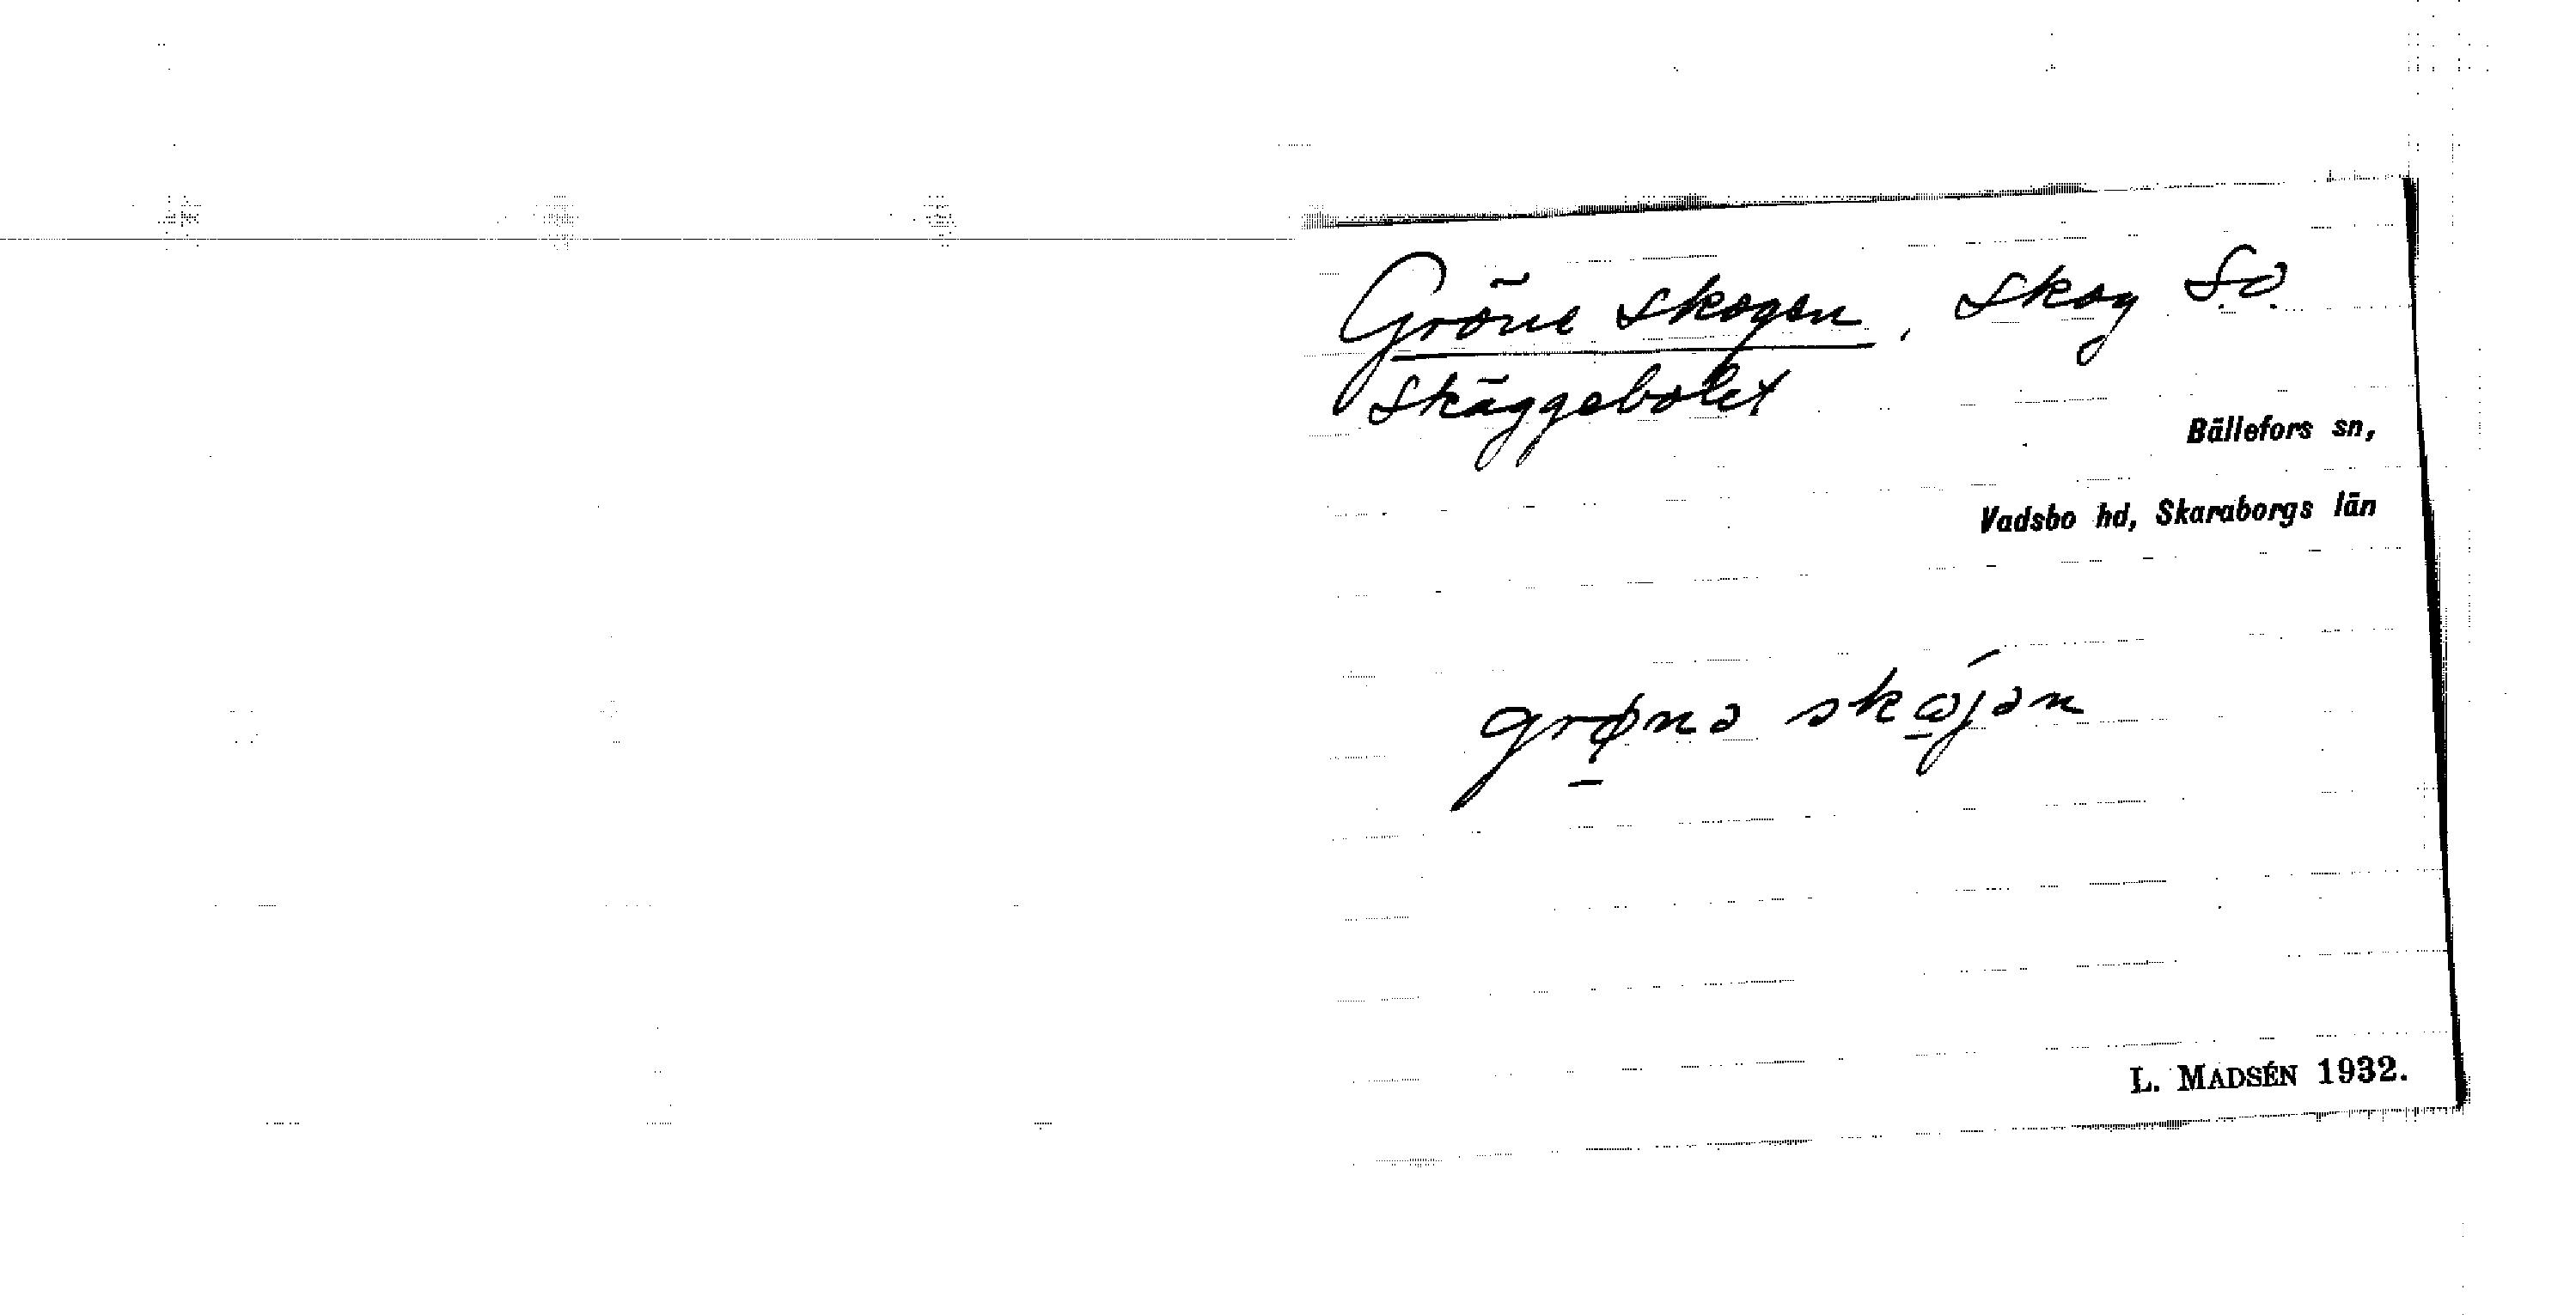 Gröne skogen, skog S.O.
Skäggebolet
Bällefors sn,
Vadsbo hd, Skaraborgs län
grø̱nə skɷ̱jən
L. MADSÉN 1932.